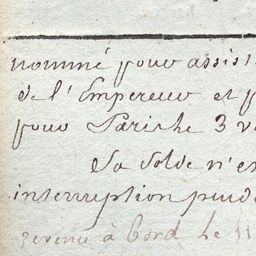 nommé pour assist
de l'Empereur et p
pour Paris le 3 v
Sa Solde n'es
interruption pend
revenu à bord le 11